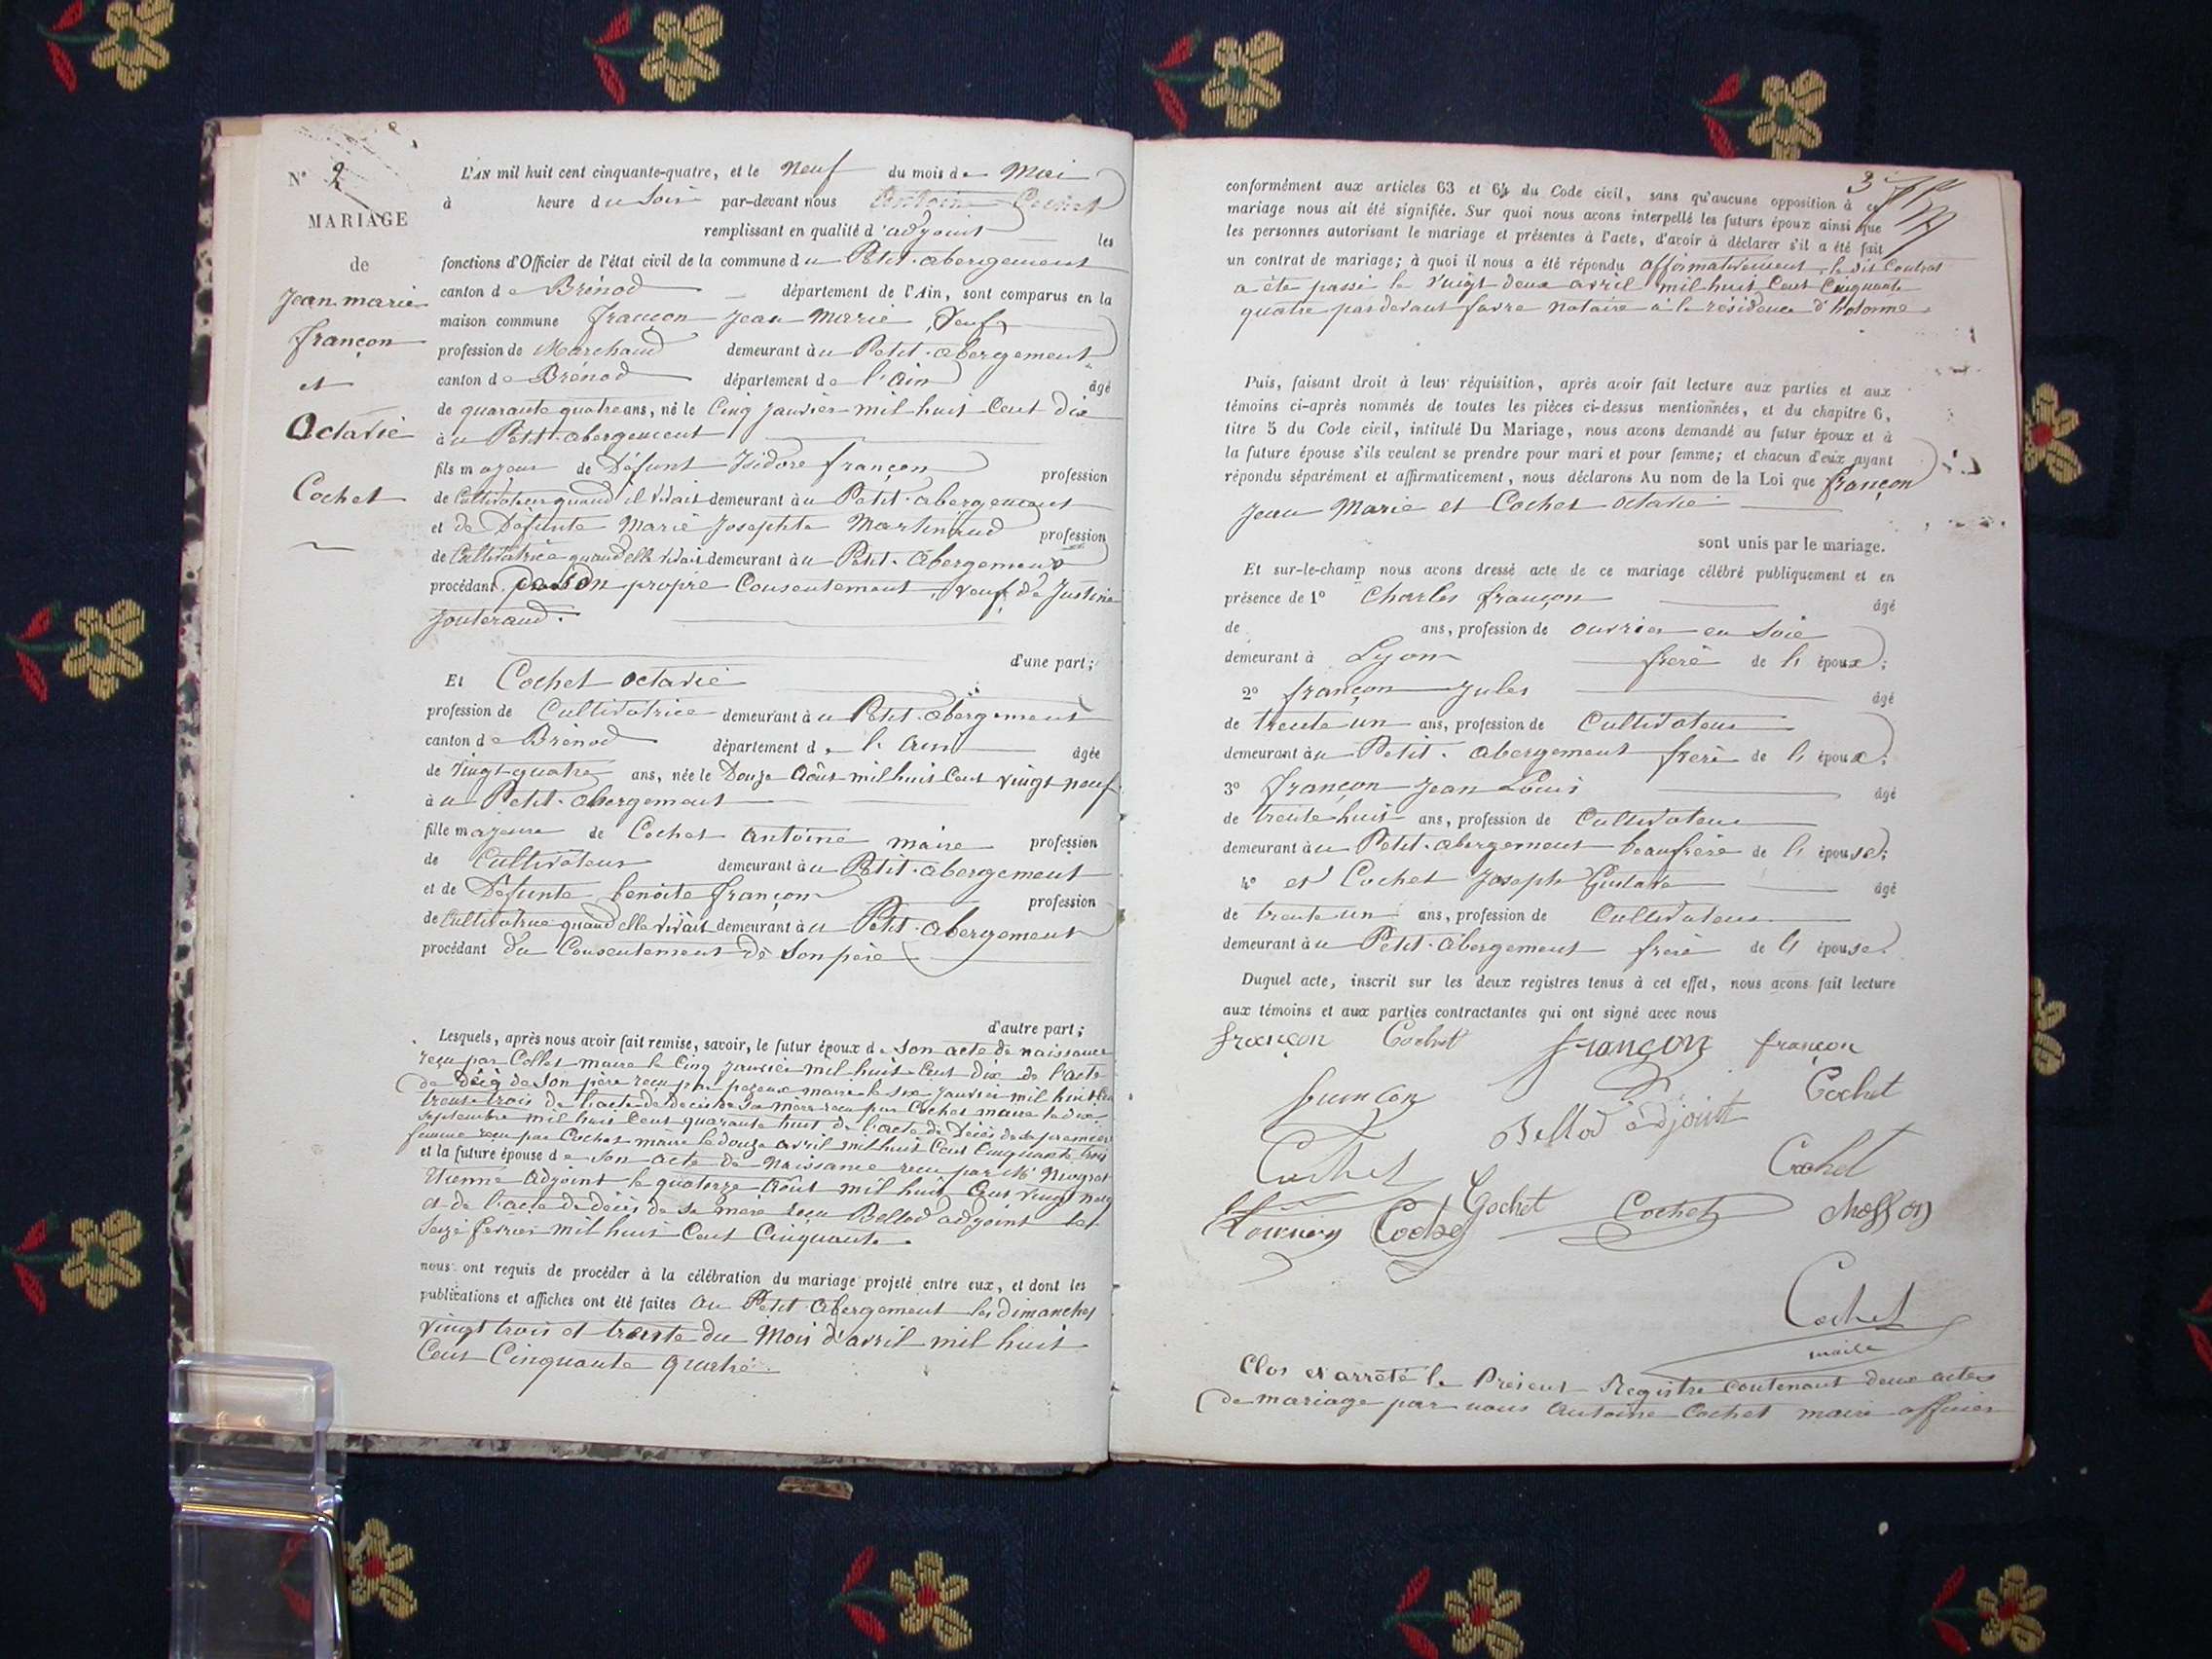 N° 2
MARIAGE
de
Jean marie
françon
et
Octavie
Cochet
L'AN mil huit cent cinquante-quatre, et le Neuf du mois de Mai
à heure du Soir par-devant nous Antoine Cochet
remplissant en qualité d'adjoint les
fonctions d'Officier de l'état civil de la commune du Petit-abergement
canton de Brénod département de l'Ain, sont comparus en la
maison commune françon Jean Marie, Veuf
profession de Marchand demeurant au Petit-abergement
canton de Brénod département de l'Ain âgé
de quarante quatre ans, né le Cinq Janvier mil huit Cent dix
au Petit-abergement
fils majeur de Défunt Isidore françon profession
de Cultivateur quand il vivait demeurant au Petit-abergement
et de Défunte Marie Josephte profession
de Cultivatrice quand elle vivait demeurant au Petit-Abergement
procédant de Son propre Consentement, veuf de Justine
Jouteraud.
d'une part;
Et Cochet octavie
profession de Cultivatrice demeurant au Petit-abergement
canton de Brénod département de l'Ain âgée
de vingt quatre ans, née le Douze Août mil huit Cent vingt neuf
au Petit-abergement
fille majeure de Cochet Antoine maire profession
de Cultivateur demeurant au Petit-abergement
et de Défunte benoite françon profession
de Cultivatrice quand elle vivait demeurant au Petit-abergement
procédant du Consentement de Son père
d'autre part;
Lesquels, après nous avoir fait remise, savoir, le futur époux de Son acte de naissance
reçu par Collet maire le Cinq Janvier mil huit Cent dix de l'acte
de décès de Son père reçu par maire le six Janvier mil huit Cent
trente trois de l'acte de décès de Sa mère reçu par Cochet maire le dix
Septembre mil huit Cent quarante huit de l'acte de Décès de sa première
femme reçu par Cochet maire le douze avril mil huit Cent Cinquante trois
et la future épouse de Son acte de Naissance reçu par
Etienne Adjoint le quatorze Août mil huit Cent vingt neuf
et de l'acte de décès de Sa mère reçu Bellod adjoint le
Seize février mil huit Cent Cinquante.
nous ont requis de procéder à la célébration du mariage projeté entre eux, et dont les
publications et affiches ont été faites au Petit-Abergement les dimanches
vingt trois et trente du Mois d'avril mil huit
Cent Cinquante Quatre.
3
conformément aux articles 63 et 64 du Code civil, sans qu'aucune opposition à ce
mariage nous ait été signifiée. Sur quoi nous avons interpellé les futurs époux ainsi que
les personnes autorisant le mariage et présentes à l'acte, d'avoir à déclarer s'il a été fait
un contrat de mariage; à quoi il nous a été répondu affirmativement, le dit Contrat
a été passé le vingt deux avril mil huit Cent Cinquante
quatre par devant favre notaire à la résidence d'hotonne
Puis, faisant droit à leur réquisition, après avoir fait lecture aux parties et aux
témoins ci-après nommés de toutes les pièces ci-dessus mentionnées, et du chapitre 6,
titre 5 du Code civil, intitulé Du Mariage, nous avons demandé au futur époux et à
la future épouse s'ils veulent se prendre pour mari et pour femme; et chacun d'eux ayant
répondu séparément et affirmativement, nous déclarons Au nom de la Loi que françon
Jean Marie et Cochet octavie
sont unis par le mariage.
Et sur-le-champ nous avons dressé acte de ce mariage célébré publiquement et en
présence de 1° Charles françon âgé
de ans, profession de ouvrier en Soie
demeurant à Lyon frère de l' époux;
2° françon Jules âgé
de trente un ans, profession de Cultivateur
demeurant au Petit-abergement frère de l' époux;
3° françon Jean Louis âgé
de trente huit ans, profession de Cultivateur
demeurant au Petit-abergement beaufrère de l' épouse;
4° et Cochet Joseph Gustave âgé
de trente un ans, profession de Cultivateur
demeurant au Petit-abergement frère de l' épouse.
Duquel acte, inscrit sur les deux registres tenus à cet effet, nous avons fait lecture
aux témoins et aux parties contractantes qui ont signé avec nous
françon Cochet françon françon
françon Cochet
Bellod adjoint
Cochet Cochet
Cochet Cochet Cochet
Cochet
maire
Clos et arrêté le Présent Registre contenant deux actes
de mariage par nous Antoine Cochet maire officier